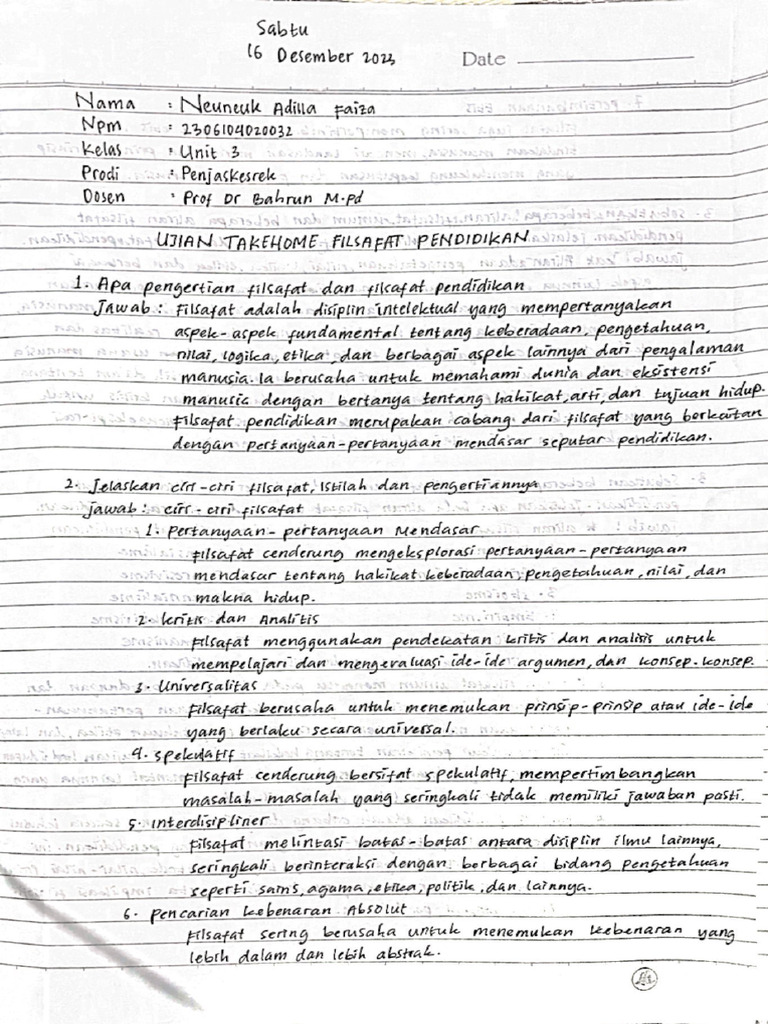 Sabtu
16 Desember 2023
Date
Nama : Neuneuk Adilla Faiza
Npm : 2306104020032
Kelas : Unit 3
Prodi : Penjaskesrek
Dosen : Prof Dr Bahrun M.Pd
UJIAN TAKEHOME FILSAFAT PENDIDIKAN
1. Apa pengertian filsafat dan filsafat pendidikan
Jawab : Filsafat adalah disiplin intelektual yang mempertanyakan
aspek-aspek fundamental tentang keberadaan, pengetahuan,
nilai, logika, etika, dan berbagai aspek lainnya dari pengalaman
manusia. Ia berusaha untuk memahami dunia dan eksistensi
manusia dengan bertanya tentang hakikat, arti, dan tujuan hidup.
Filsafat pendidikan merupakan cabang dari filsafat yang berkaitan
dengan pertanyaan-pertanyaan mendasar seputar pendidikan.
2. Jelaskan ciri-ciri filsafat, Istilah dan pengertiannya
jawab : ciri-ciri filsafat
1. Pertanyaan-pertanyaan Mendasar
Filsafat cenderung mengeksplorasi pertanyaan-pertanyaan
mendasar tentang hakikat keberadaan, pengetahuan, nilai, dan
makna hidup.
2. kritis dan Analitis
Filsafat menggunakan pendekatan kritis dan analisis untuk
mempelajari dan mengevaluasi ide-ide argumen, dan konsep-konsep.
3. Universalitas
Filsafat berusaha untuk menemukan prinsip-prinsip atau ide-ide
yang berlaku secara universal.
4. Spekulatif
Filsafat cenderung bersifat spekulatif, mempertimbangkan
masalah-masalah yang seringkali tidak memiliki jawaban pasti.
5. Interdisipliner
Filsafat melintasi batas-batas antara disiplin ilmu lainnya,
seringkali berinteraksi dengan berbagai bidang pengetahuan
seperti sains, agama, etika, politik, dan lainnya.
6. Pencarian Kebenaran Absolut
Filsafat sering berusaha untuk menemukan kebenaran yang
lebih dalam dan lebih abstrak.